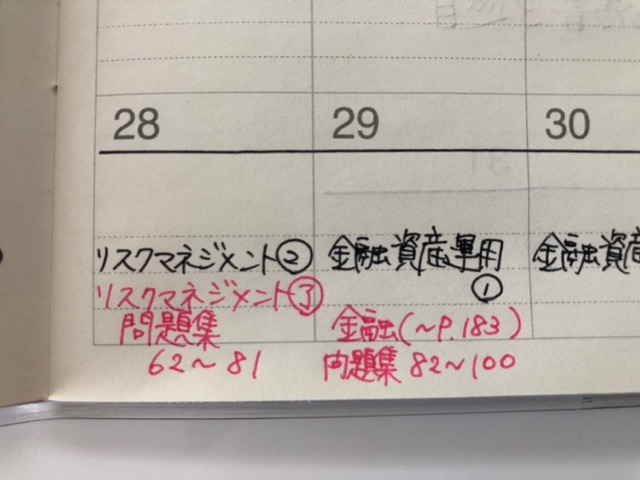 28
29
30
リスクマネジメント②
リスクマネジメント③
問題集
62～81
金融資産運用
①
金融(～P.183)
問題集 82～100
金融資産